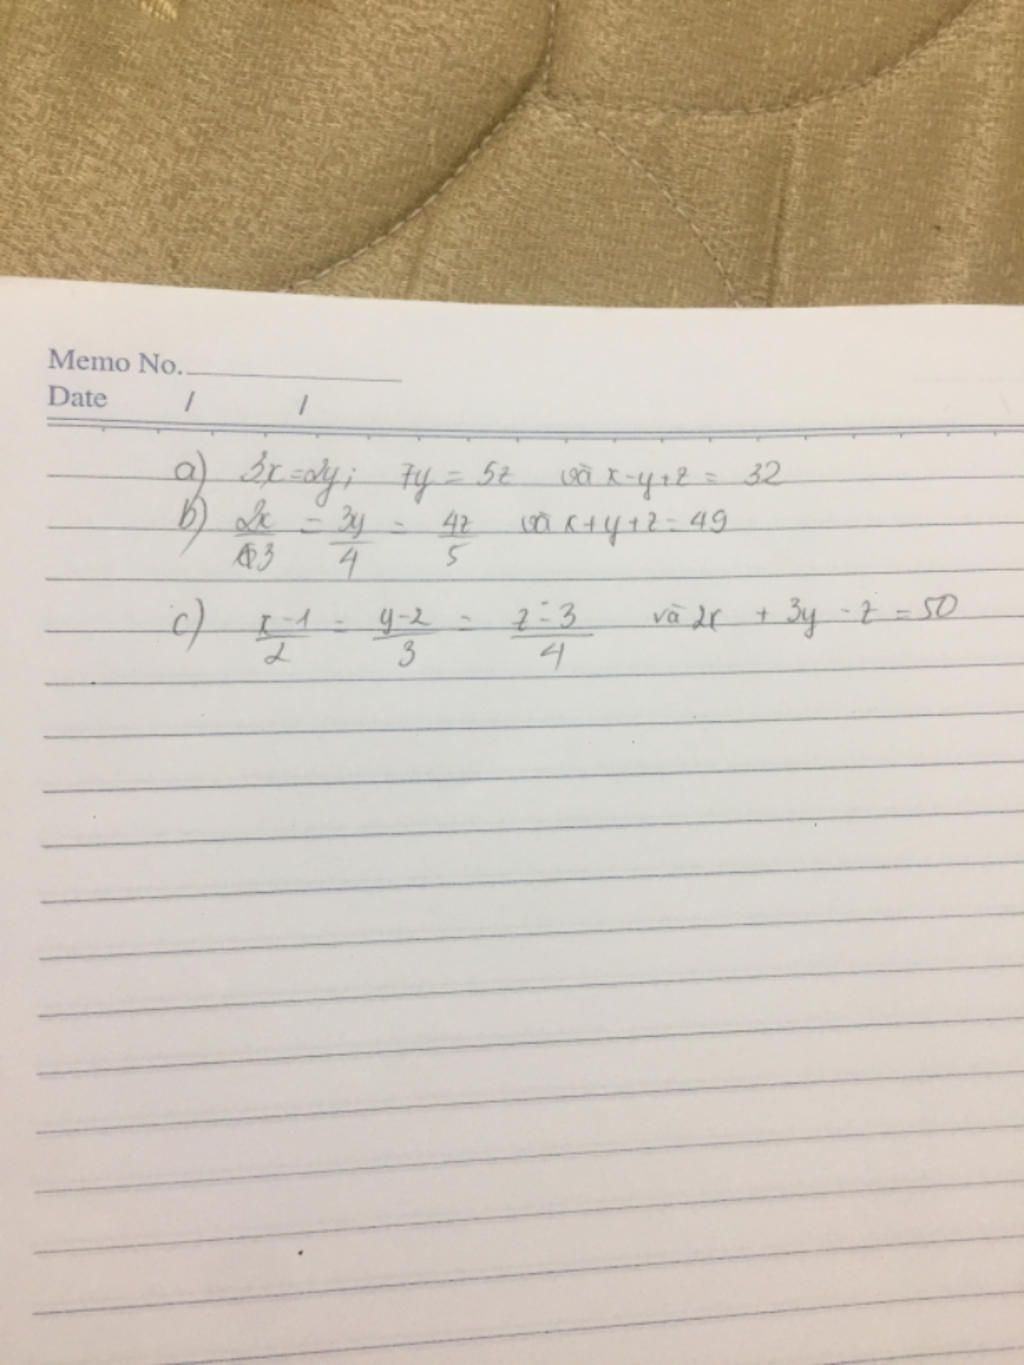 Memo No.
Date / /
a) 3x=2y; 7y = 5z và x-y+z = 32
b) 2x/3 = 3y/4 = 4z/5 và x+y+z=49
c) x-1/2 = y-2/3 = z-3/4 và 2x + 3y - z = 50